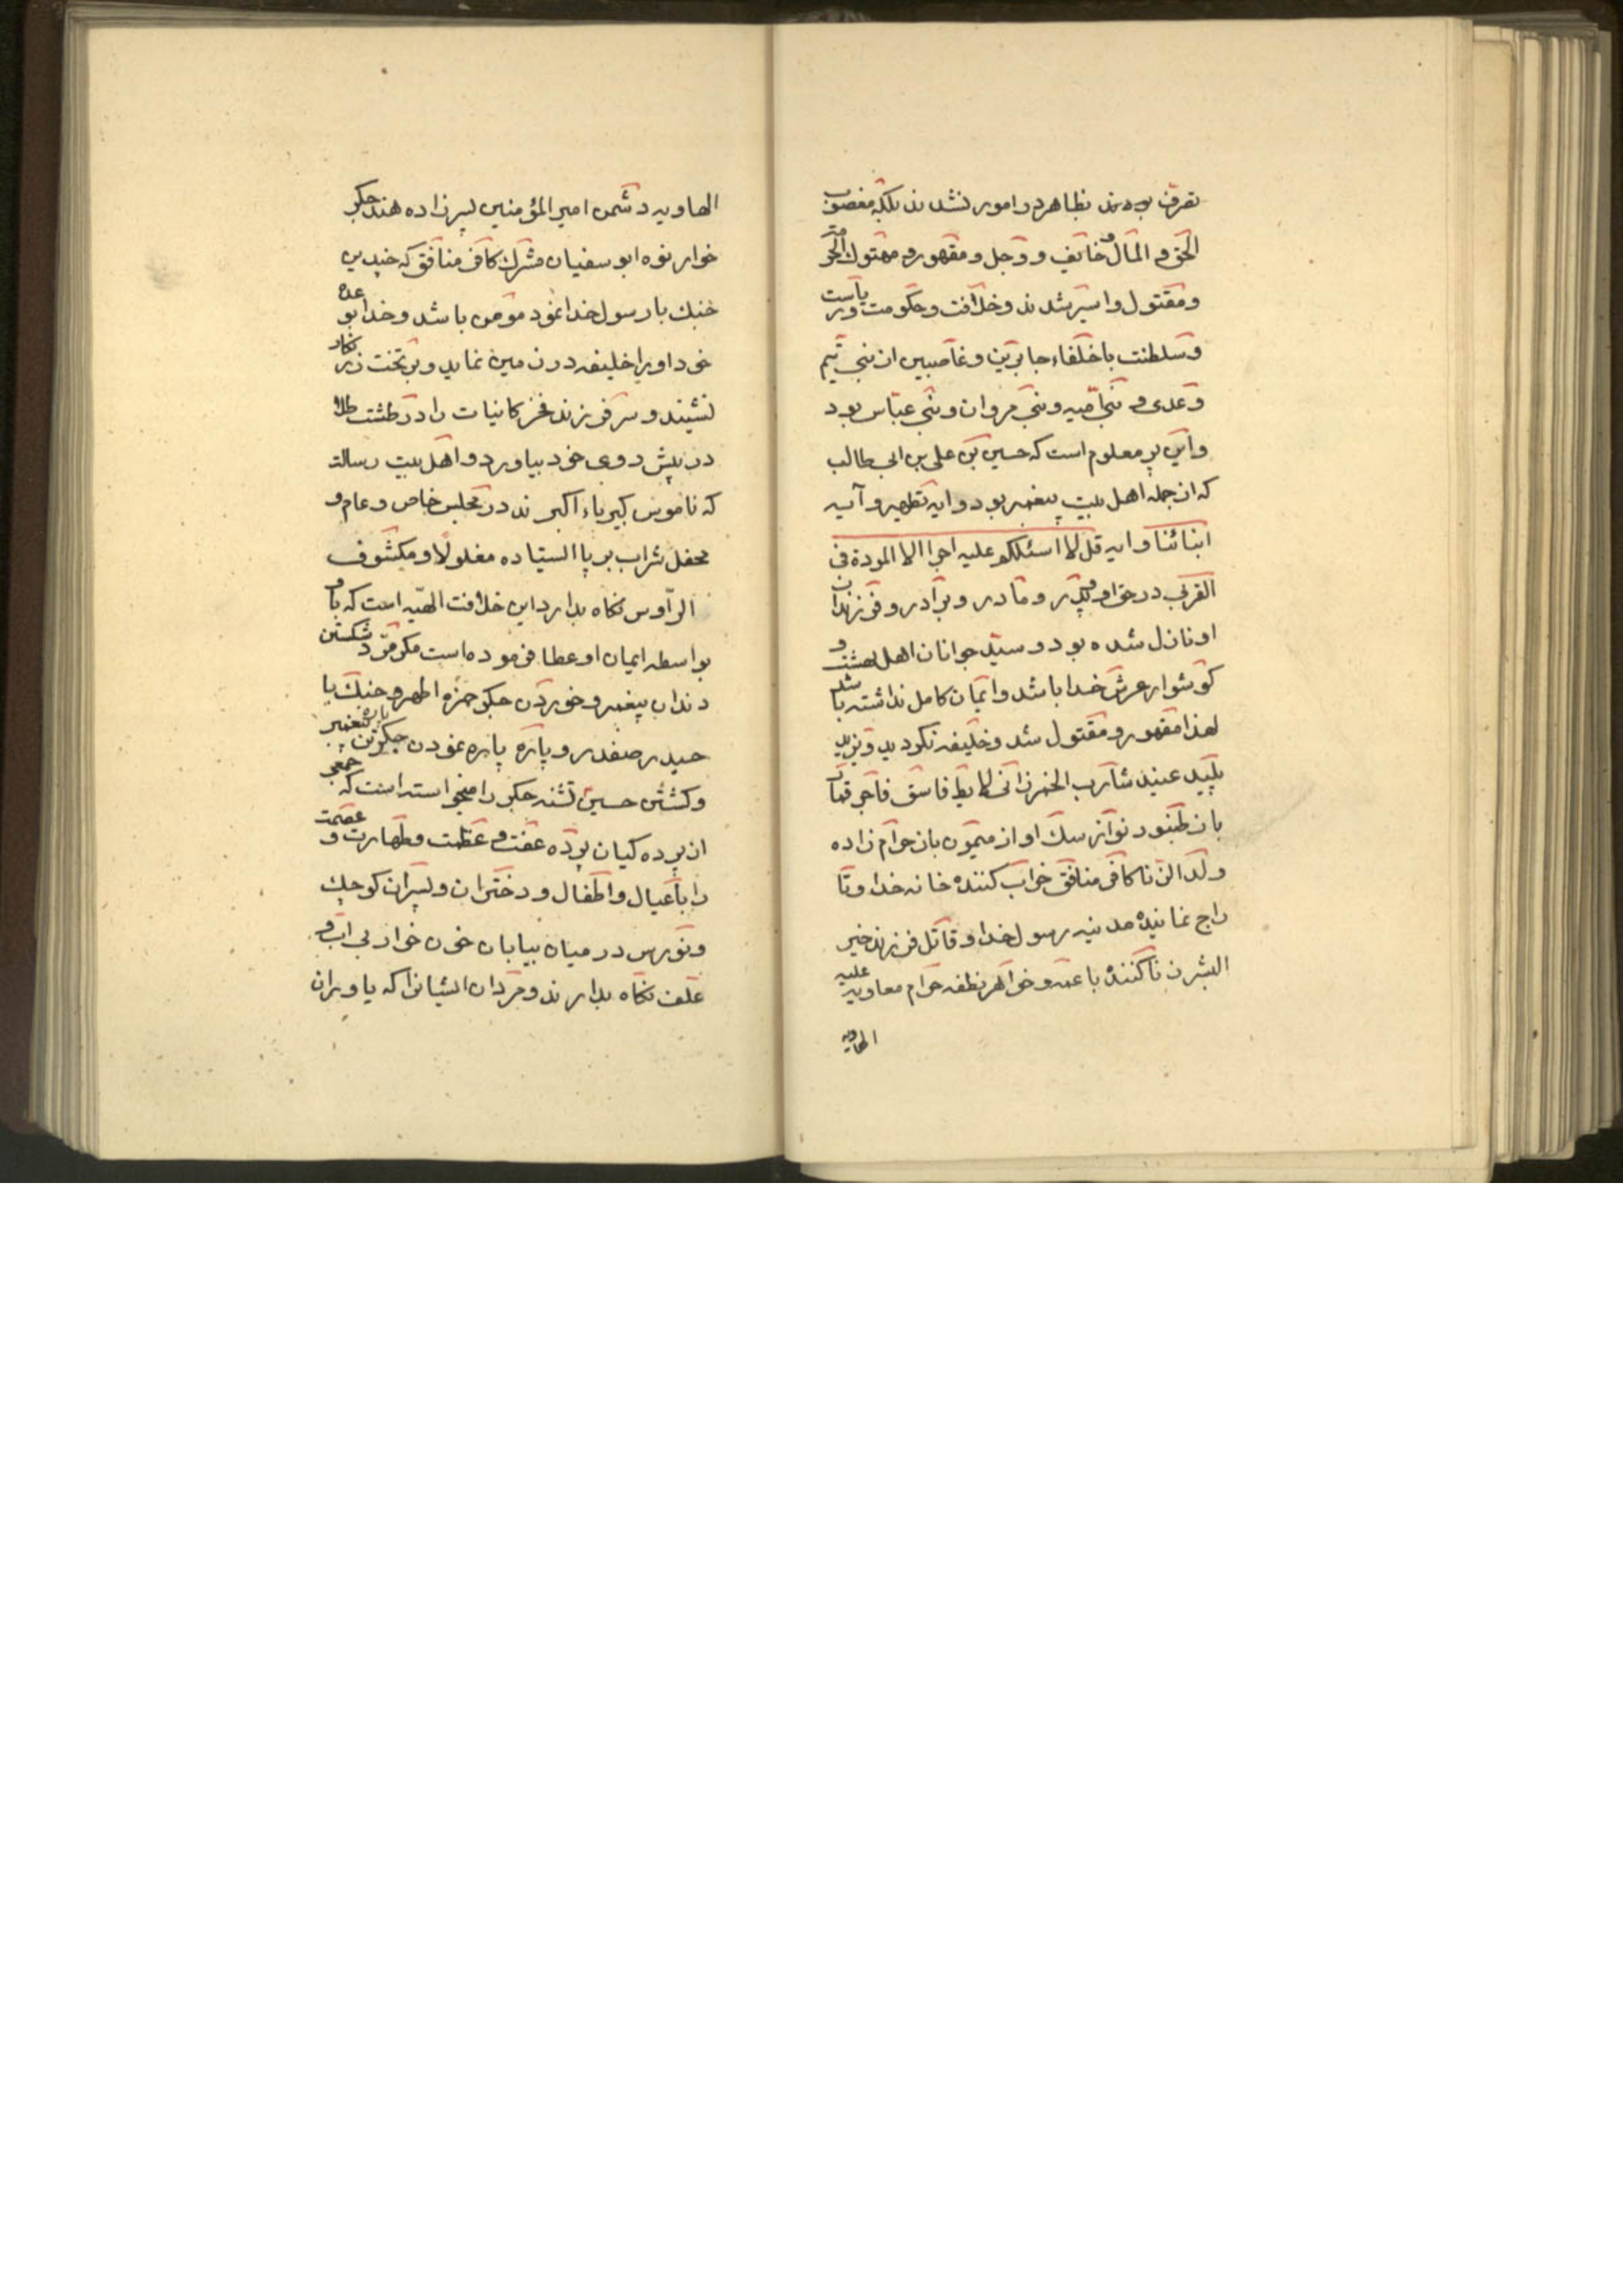 تصرف بودند بظاهر در امور نشدند بلکه مغصوب
الحق و المال و خائف و وجل و مقهور و مهتوك الحرمة
و مقتول و اسیر شدند و خلافت و حکومت و ریاست
و سلطنت با خلفاء جابرین و غاصبین از بنی تیم
و عدی و بنی امیه و بنی مروان و بنی عباس بود
و این پر معلوم است که حسین بن علی بن ابی طالب
که از جمله اهل بیت پیغمبر بود و ایه تطهیر و آیه
ابنائنا و ایه قل لا اسئلکم علیه اجرا الا المودة فی
القربی در حق او و پدر و مادر و برادر و فرزندان
او نازل شده بود و سید جوانان اهل بهشت و
کوشوار عرش خدا باشد و ایمان کامل نداشته باشد
لهذا مقهور و مقتول شد و خلیفه نکردید و یزید
پلید عنید شارب الخمر زانی لایط فاسق فاجر قمار
باز طنبور نواز سك او از میمون باز حرام زاده
ولد الزنا کافر منافق خراب کننده خانه خدا و تا
راج نماینده مدینه رسول خدا و قاتل فرزند خیر
البشر زنا کننده با عمه و خواهر نطفه حرام معاویه علیه
الهاویه
الهاویه دشمن امیر المؤمنین پسر زاده هند جکر
خوار نوه ابو سفیان مشرك کافر منافق که چندین
جنك با رسول خدا نمود مؤمن باشد و خدا بوعده
خود او را خلیفه در زمین نماید و بر تخت زر نکار
نشیند و سر فرزند فخر کاینات را در طشت طلا
در پیش روی خود بیاورد و اهل بیت رسالت
که ناموس کبریاء اکبرند در مجلس خاص و عام و
محفل شراب بر پا ایستاده مغلولا و مکشوف
الرّاوس نکاه بدارد این خلافت الهیّه است که باو
بواسطه ایمان او عطا فرموده است مکر مزد شکستن
دندان پیغمبر و خوردن جکر حمزه اطهر و جنك با
حیدر صفدر و پاره پاره نمودن جکر پاره تن پیغمبر
و کشتن حسین تشنه جکر را میخواسته است که جمعی
از پرده کیان پرده عفت و عظمت و طهارت و عصمت
را با عیال و اطفال و دختران و پسران کوچك
و نورس در میان بیابان خون خوار بی اب و
علف نکاه بدارند و مردان ایشانرا که یاوران